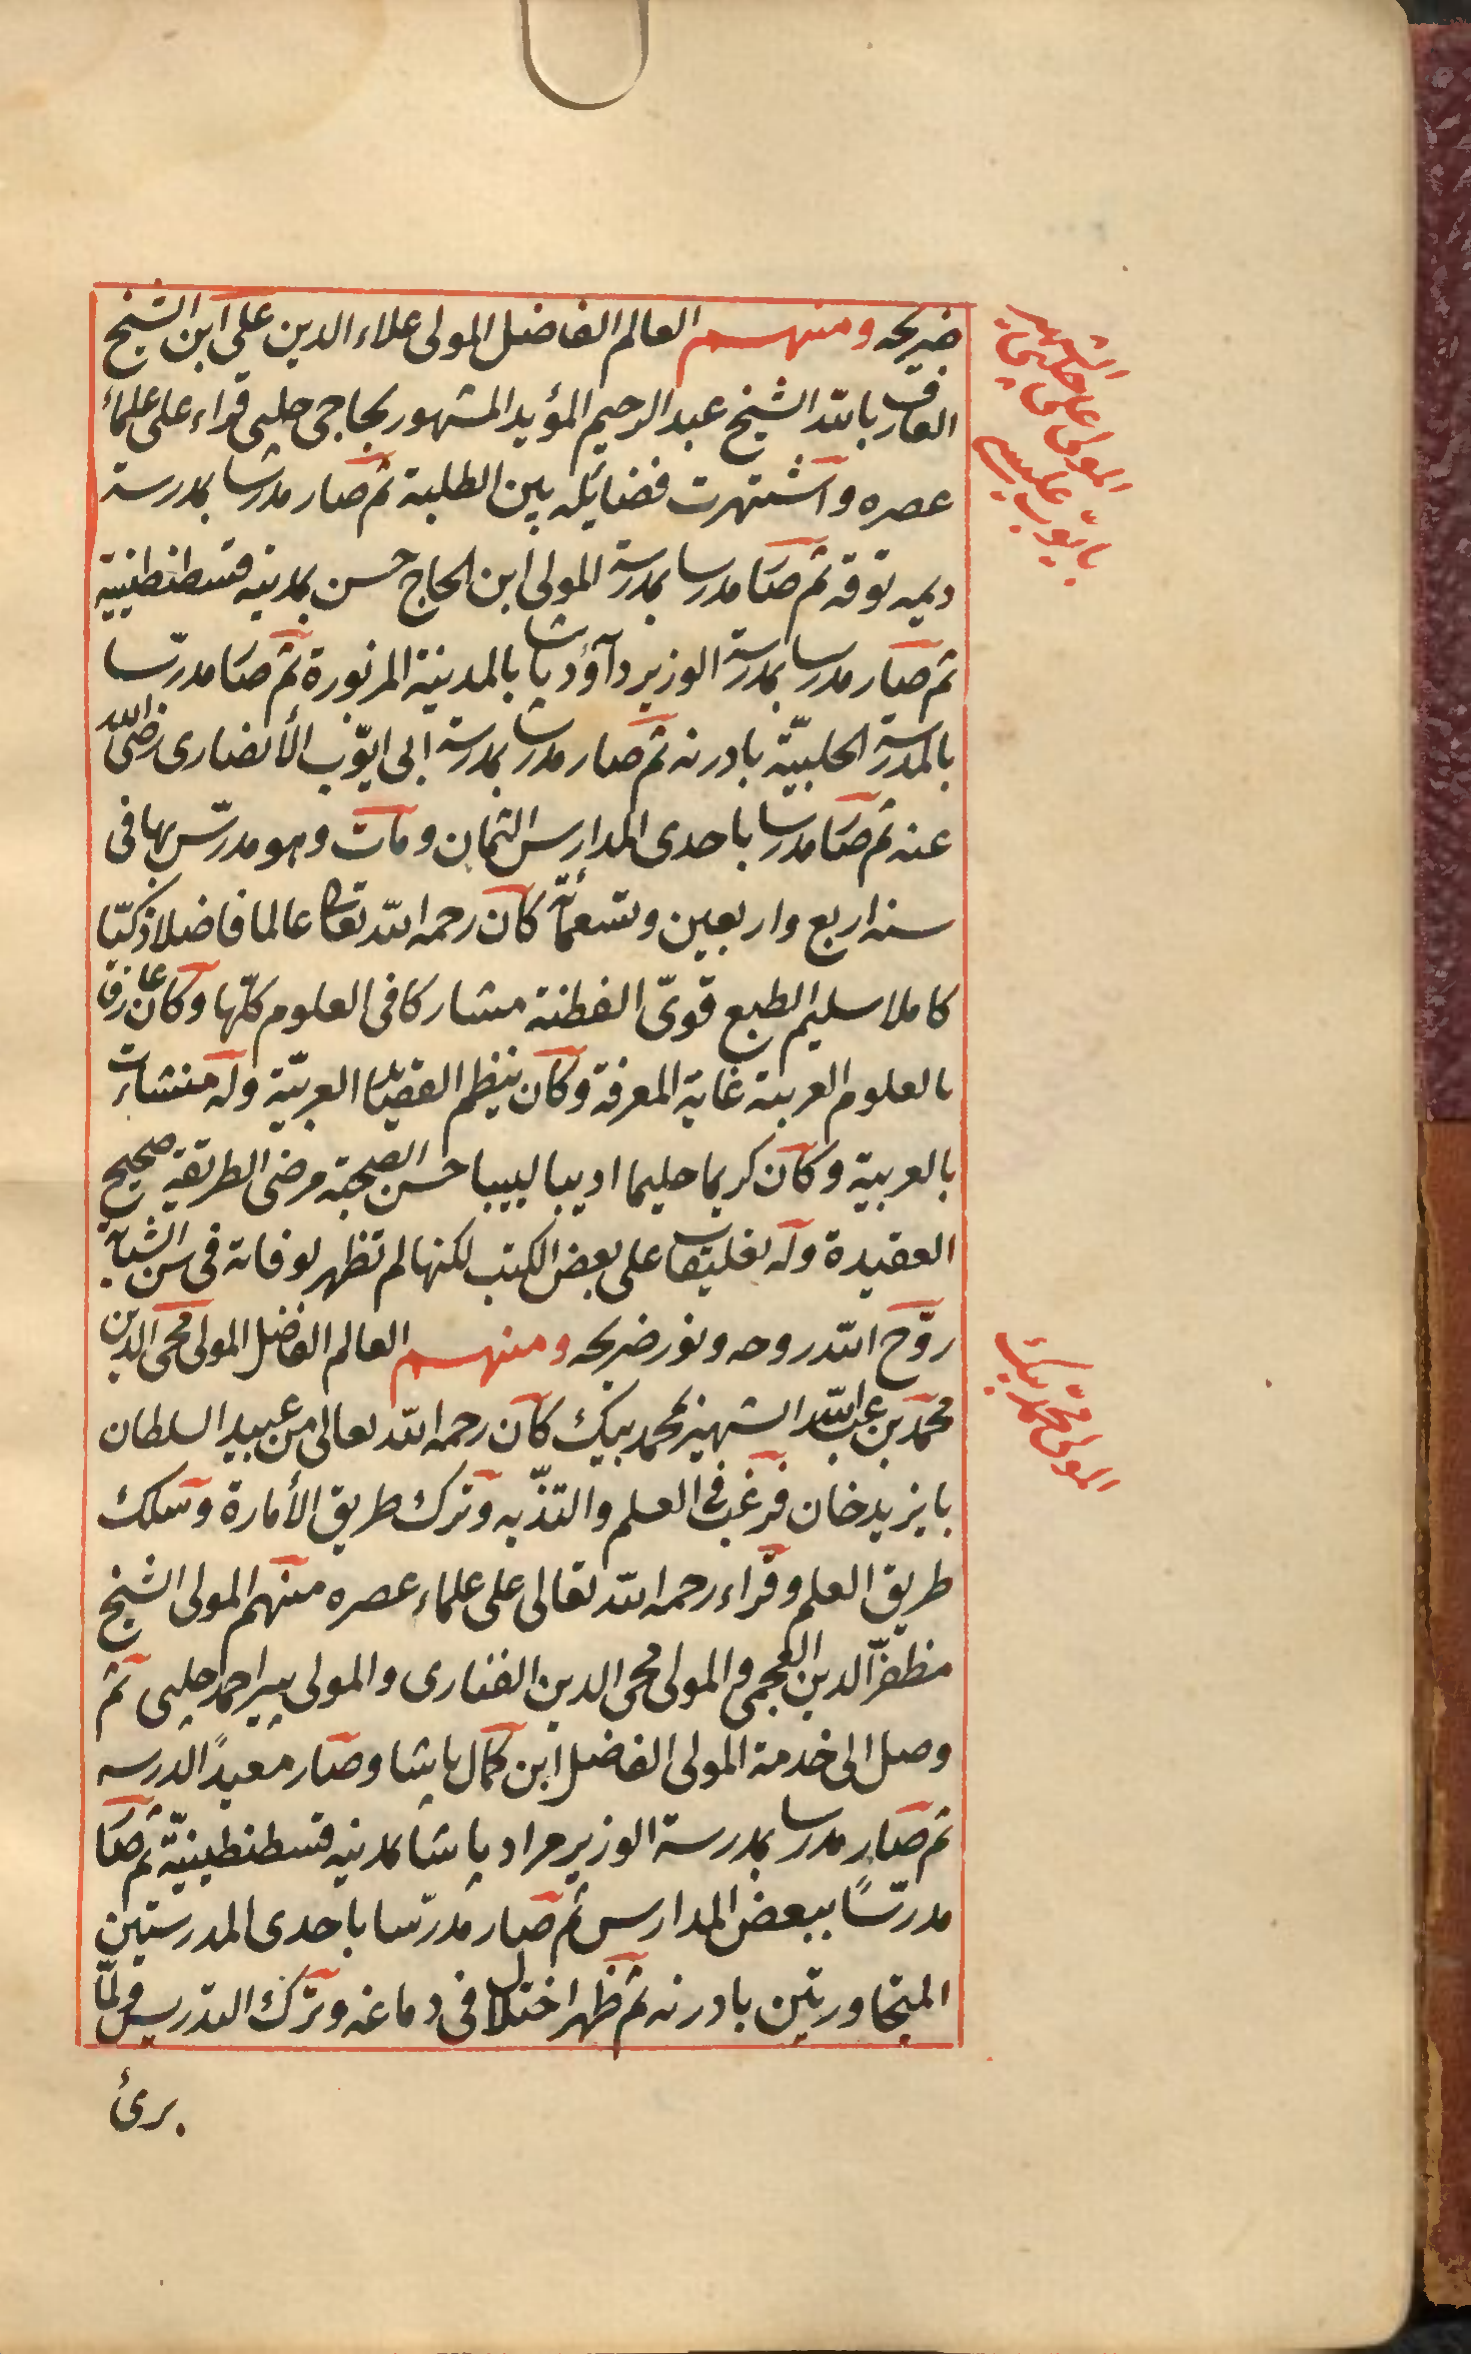 ضريحه ومنهم العالم الفاضل المولى علاء الدين على ابن الشيخ
العارف بالله الشيخ عبد الرحيم المؤيد المشهور بحاجى چلبى قراء على علماء
عصره واشتهرت فضايله بين الطلبة ثم صار مدرسا بمدرسة
ديمه توقه ثم صار مدرسا بمدرسة المولى ابن الحاج حسن بمدينه قسطنطنيية
ثم صار مدرسا بمدرسة الوزير داؤد پاشا بالمدينة المزبورة ثم صار مدرّسا
بالمدرسة الحلبيّة بادرنه ثم صار مدرسا بمدرسة ابى ايّوب الأنصارى رضى الله
عنه ثم صار مدرسا باحدى المدارس الثمان ومات وهو مدرّس بها فى
سنه اربع واربعين وتسعمائة كان رحمه الله تعالى عالما فاضلا ذكيّا
كاملا سليم الطبع قوىّ الفطنة مشاركا فى العلوم كلّها وكان عارفا
بالعلوم العربية غاية المعرفة وكان ينظم القصايد العربيّة وله منشاءت
بالعربية وكان كريما حليما اديبا لبيبا حسن الصحبة مرضى الطريقة صحيح
العقيدة وله تعليقات على بعض الكتب لكنها لم تظهر لوفاته فى سن الشباب
روّح الله روحه ونور ضريحه ومنهم العالم الفاضل المولى محى الدين
محمّد بن عبد الله الشهير بمحمد بيك كان رحمه الله تعالى من عبيد السلطان
بايزيد خان فرغب فى العلم والتذّبه وترك طريق الأمارة وسلك
طريق العلم وقراء رحمه الله تعالى على علماء عصره منهم المولى الشيخ
مظفّر الدين العجمى والمولى محى الدين الفنارى والمولى پير احمد چلبى ثم
وصل الى خدمة المولى الفاضل ابن كمال پاشا وصار معيدًا لدرسه
ثم صار مدرسا بمدرسة الوزير مراد پاشا بمدينه قسطنطينيّة ثم صار
مدرّسًا ببعض المدارس ثم صار مدرّسا باحدى المدرستين
المتجاورتين بادرنه ثم ظهر اختلال فى دماغه وترك التدريس ولمّا
برئ
المولى على چلبى الشهير
المولى محمّد بك